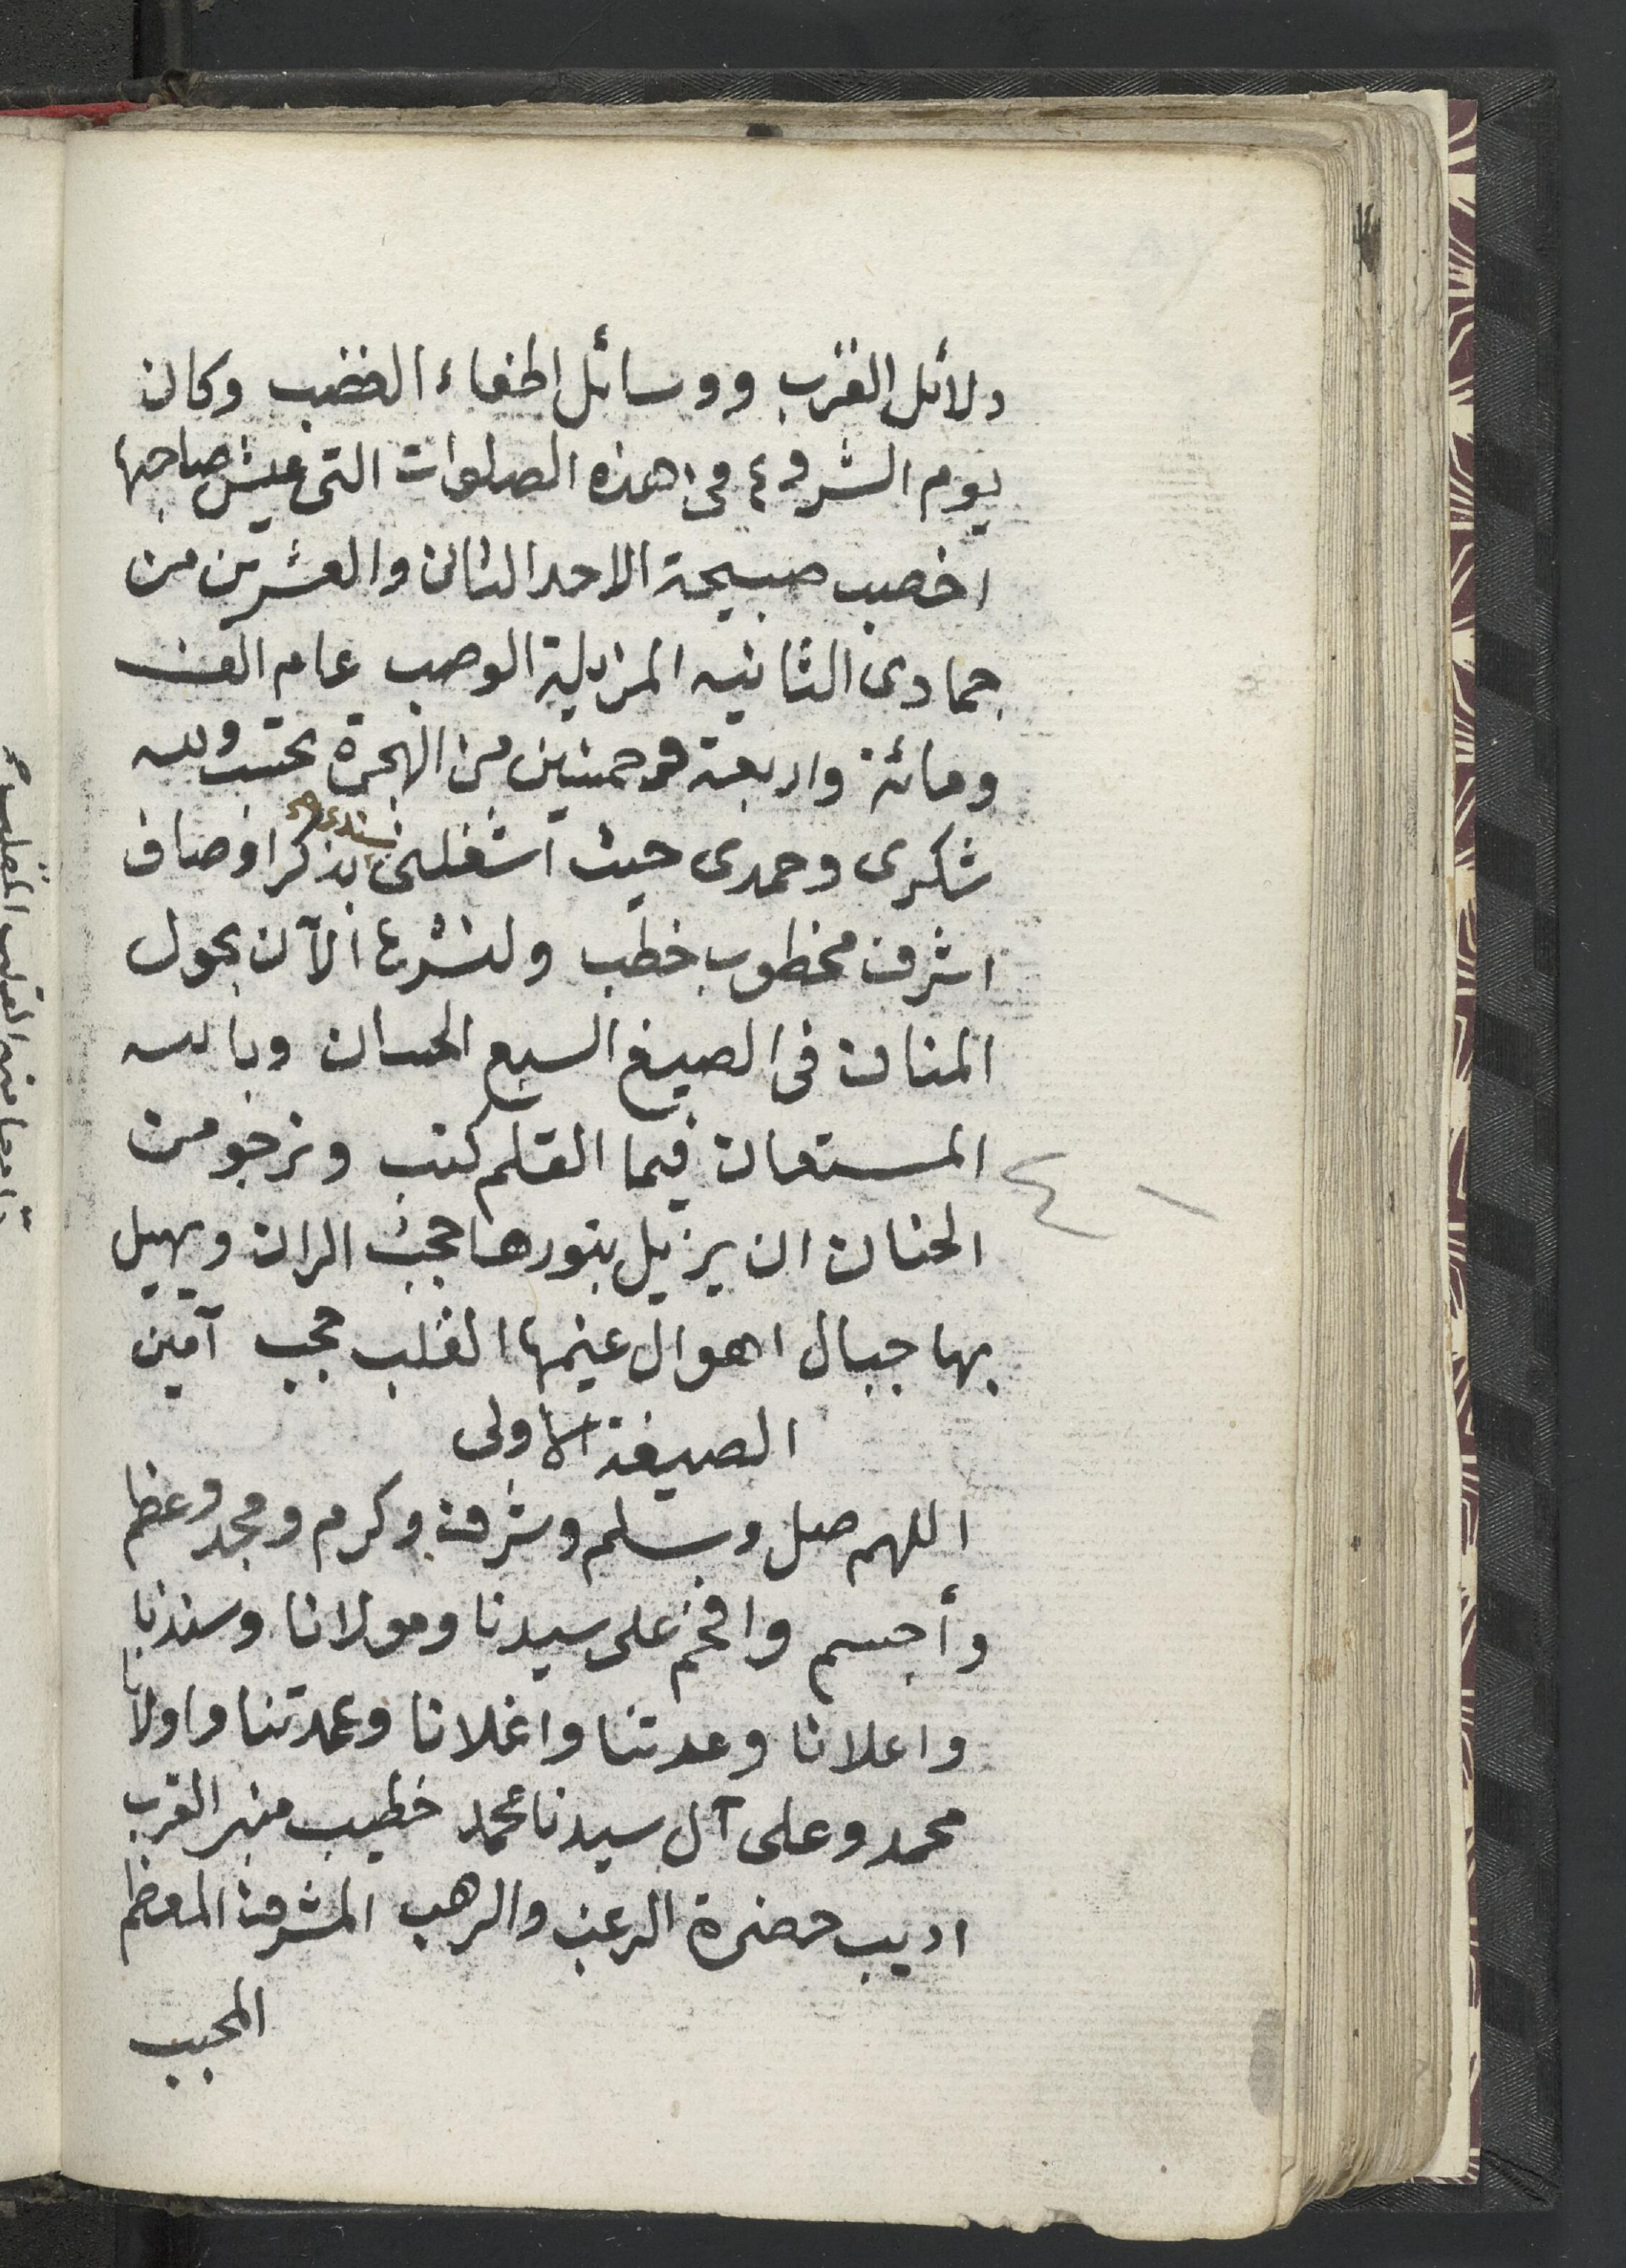 دلائل القرب ووسائل اطفاء الغضب وكان
يوم الشروع في هذه الصلوات التي عيش صاحبها
اخصب صبيحة الاحد الثاني والعشرين من
جمادى الثانيه المزيلة الوصب عام الف
ومائة واربعة وخمسين من الهجرة تحتب ولله
شكرى وحمدى حيث اشغلني بذكر اوصاف
اشرف مخطوب خطب ولنشرع الآن بحول
المنان في الصيغ السبع الحسان وبالله
المستعان فيما القلم كتب ونرجو من
الحنان ان يزيل بنورها حجب الران ويهيل
بها جبال اهوال غيمها القلب حجب آمين
الصيغة الاولى
اللهم صل وسلم وشرف وكرم ومجد وعظم
وأجسم وافخم على سيدنا ومولانا وسندنا
واعلانا وعدتنا واغلانا وعمدتنا واولانا
محمد وعلى آل سيدنا محمد خطيب منبر القرب
اديب حضرة الرغب والرهب المشرف المعظم
المحبب